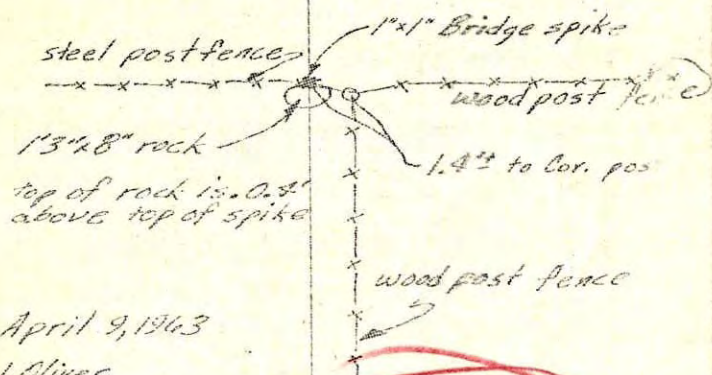 1"x1" Bridge spike
steel post fence
wood post
1"3"x8" rock
1.4'± to Cor. pos
top of rock is 0.4'
above top of spike
wood post fence
April 9, 1963
Oliver